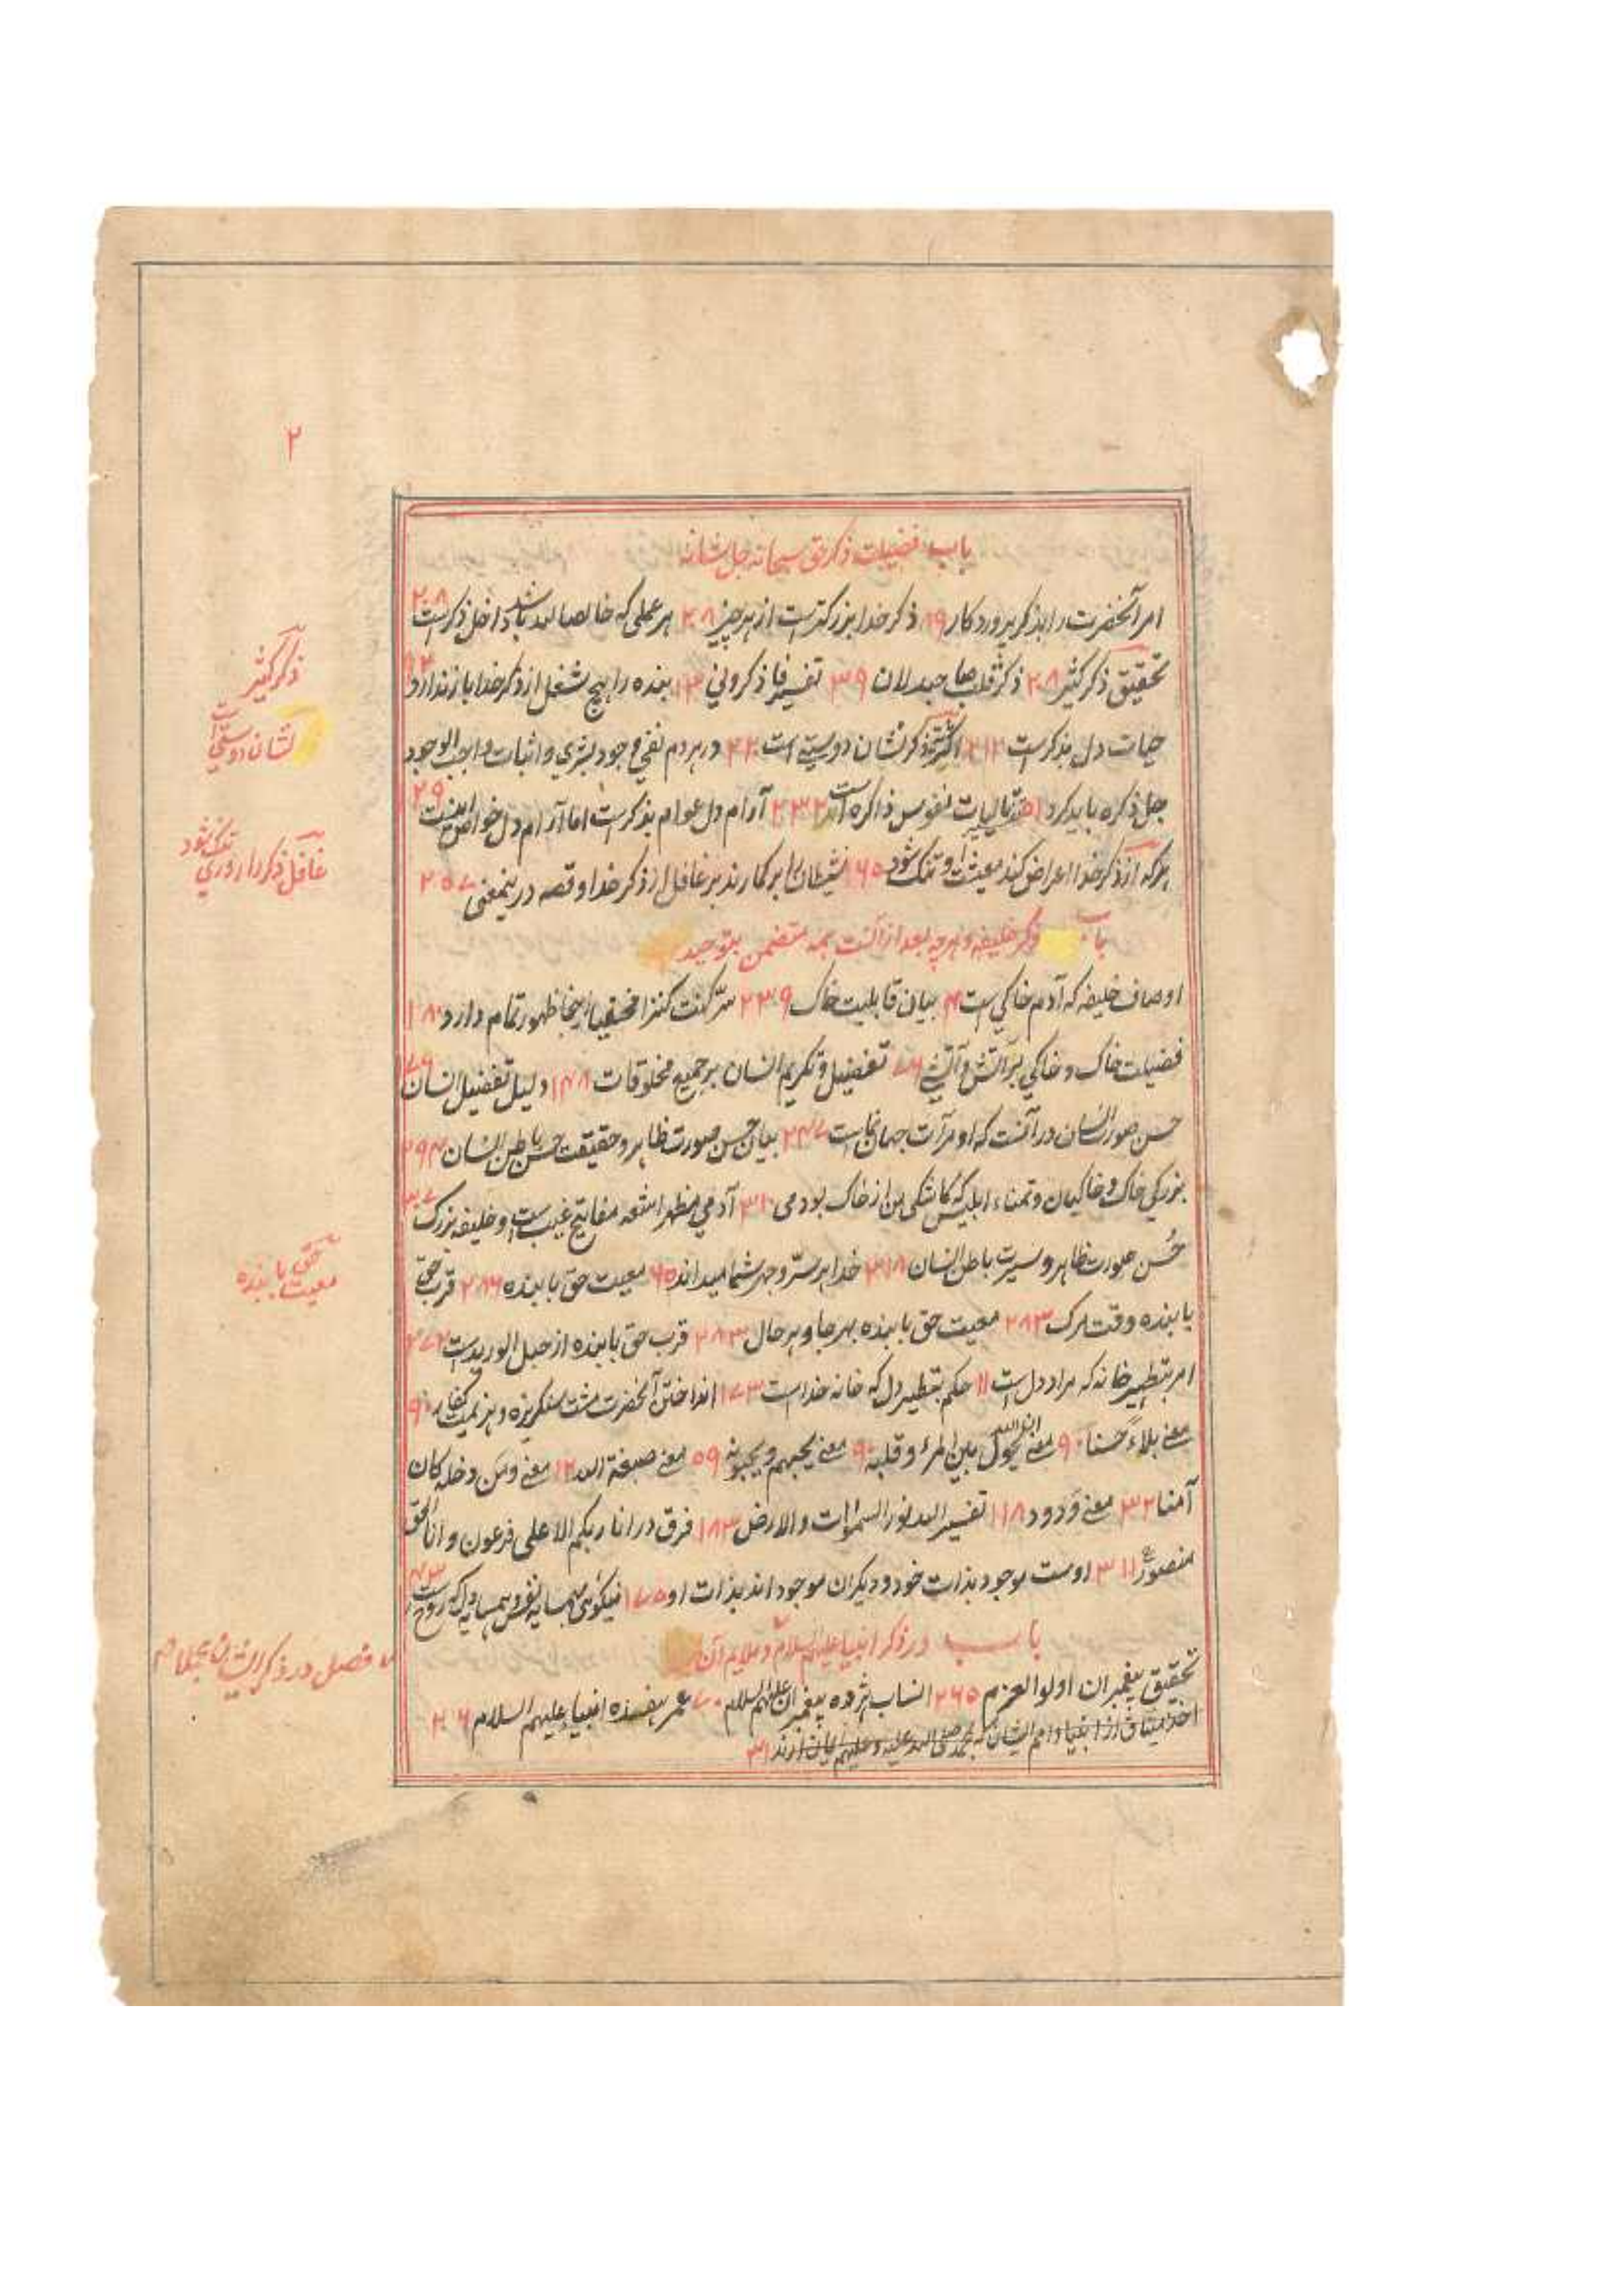 ۲
باب فضیلت ذکر حق سبحانه جل شانه
امر آنحضرت را بذکر پروردکار ۸۹ ذکر خدا بزرکترست از هر چیز ۲۰۸ هر عملی که خالصا لله باشد داخل ذکرست ۲۰۸
تحقیق ذکر کثیر ۲۰۸ ذکر قلب صاحبدلان ۳۹ تفسیر فاذکرونی ۱۳ بنده را هیچ شغل از ذکر خدا باز ندارد
حیات دل بذکرست ۲۱۲ اکثر ذکر نشان دوستی است ۴۲ در هر دم نفی وجود بشری و اثبات واجب الوجود
جل ذکره باید کرد نفوس ذاکره است ۲۳۲ آرام دل عوام بذکرست اما آرام دل خواص ۲۹
هرکه از ذکر خدا اعراض کند معیشت او تنک شود ۱۶۵ شیطان را بر کمارند بر غافل از ذکر خدا و قصه درینمعنی ۲۵۷
باب ذکر خلیفه و هرچه بعد از آنست همه متضمن بتوحید
اوصاف خلیفه که آدم خاکی است ۴ بیان قابلیت خاک ۲۳۹ سرّ کنت کنزا مخفیا اینجا ظهور تمام دارد ۱۸۰
فضیلت خاک و خاکی بر آتش و آتشی تفضیل و تکریم انسان بر جمیع مخلوقات ۱۴۸ دلیل تفضیل انسان
حسن صور انسان در آنست که او مرآت جهان نماست ۲۴۷ بیان حسن صورت ظاهر و حقیقت حسن باطن انسان ۲۹۴
بزرکی خاک و خاکیان و تمناء ابلیس که کاشکی من از خاک بودمی ۳۱۰ آدمی مظهر اشعه مفاتیح غیب است و خلیفه بزرک
حُسن صورت ظاهر و سیرت باطن انسان ۳۱۸ خدا بر سرّ و جهر شما میداند ۶۵ معیت حق با بنده ۲۸۶ قرب حق
با بنده وقت مرک ۲۸۳ معیت حق با بنده بهر جا و بهر حال ۲۸۳ قرب حق با بنده از حبل الوریدست ۲۷۲
امر بتطهیر خانه که مراد دل است ۱۱ حکم بتطهیر دل که خانه خداست ۱۷۳ انداختن آنحضرت مشت سنکریزه و هزیمت کفار ۹۰
معنی بلاء حسنا ۹۰ معنی ان الله یحول بین المرء و قلبه ۹۰ معنی یحبهم و یحبونه ۵۹ معنی صبغة الله ۱۲ معنی و من دخله کان
آمنا ۳۲ معنی ودود ۱۱۸ تفسیر الله نور السموات والارض ۱۸۳ فرق در انا ربکم الاعلی فرعون و انا الحق
منصور ۳۱۱ اوست موجود بذات خود و دیکران موجود اند بذات او ۱۷۵ نیکوئی همسایه نفس و همسایه دل که روح است ۴۳
باب در ذکر انبیا علیهم السلام و ملایم آن
تحقیق پیغمبران اولوالعزم ۲۶۵ انساب پژده پیغمبران علیهم السلام ۷۰ عمر هفده انبیا علیهم السلام ۲۰۶
اخذ میثاق از انبیا و امم ایشان که بمحمد صلی الله علیه و علیهم ایمان آرند ۳۱
ذکر کثیر
نشان دوستی است
غافل ذکر را روزی تنک شود
معیت حق با بنده
فصل در ذکر ایشان